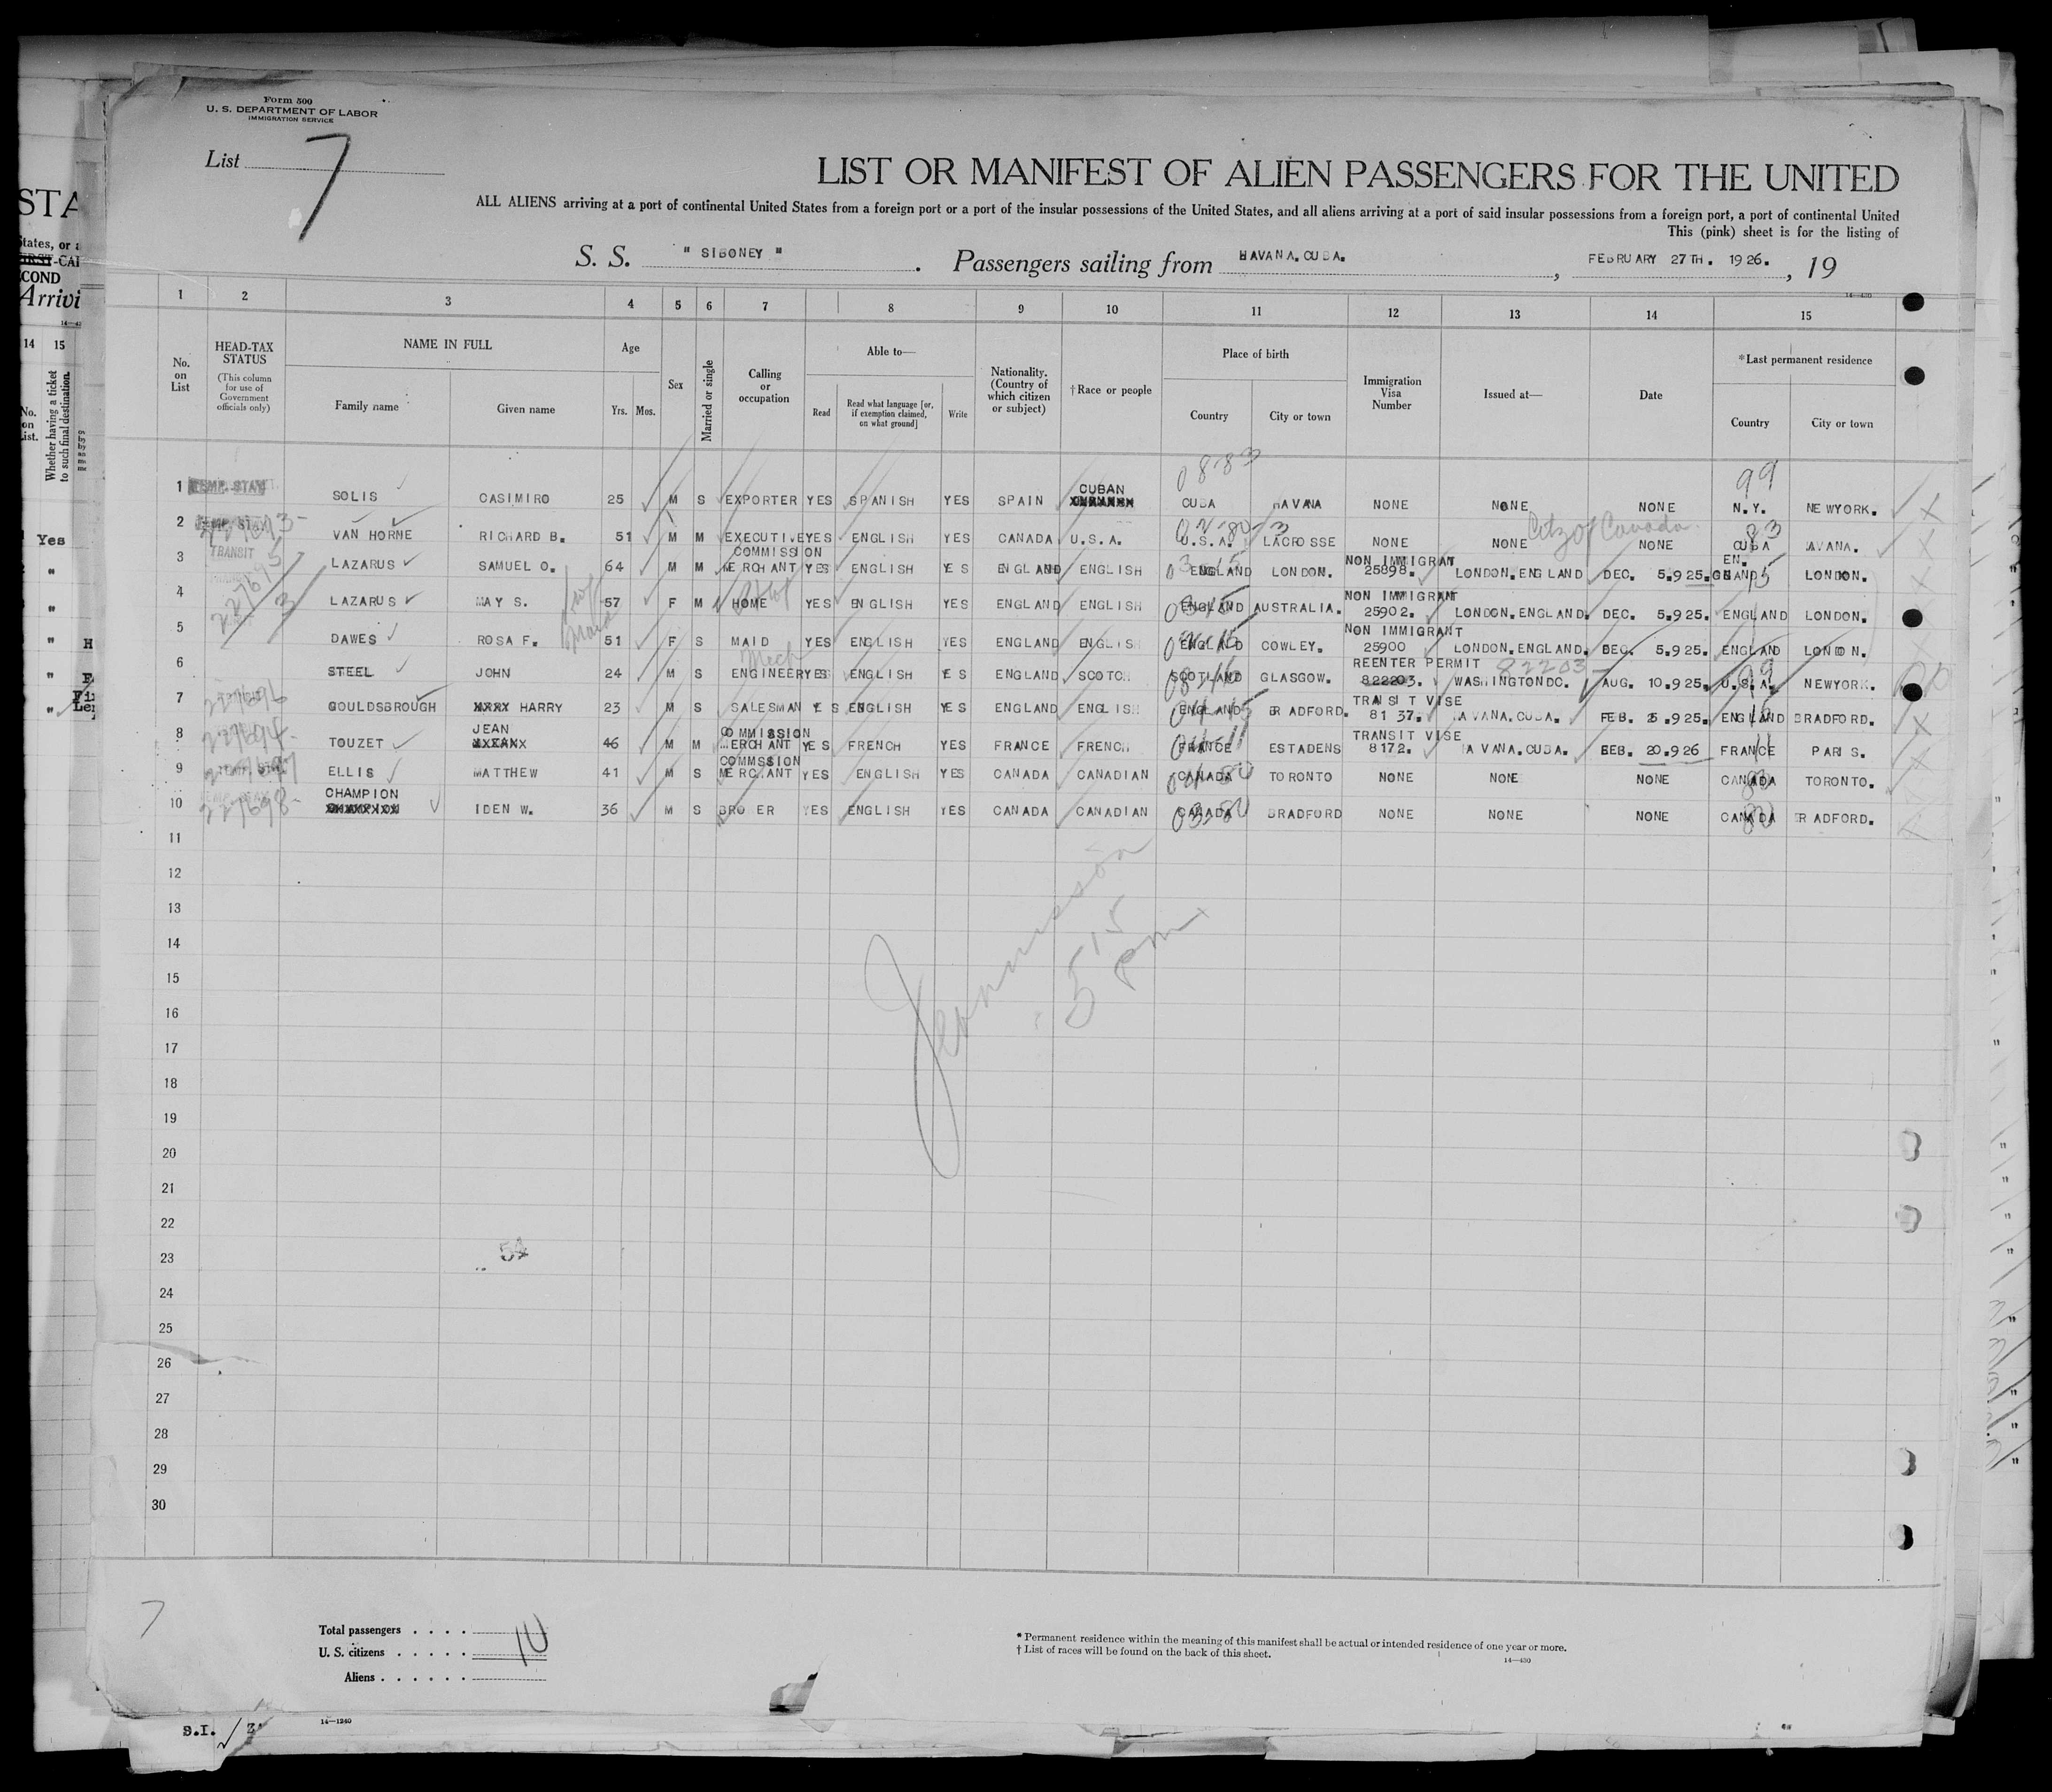 Form 500
U. S. DEPARTMENT OF LABOR
IMMIGRATION SERVICE
List 7
LIST OR MANIFEST OF ALIEN PASSENGERS FOR THE UNITED
ALL ALIENS arriving at a port of continental United States from a foreign port or a port of the insular possessions of the United States, and all aliens arriving at a port of said insular possessions from a foreign port, a port of continental United
This (pink) sheet is for the listing of
S. S. " SIBONEY ". Passengers sailing from HAVANA.CUBA. , FEBRUARY 27TH. 1926. , 19
14—430
1 2 3 4 5 6 7 8 9 10 11 12 13 14 15
No. on List
HEAD-TAX STATUS (This column for use of Government officials only)
NAME IN FULL
Family name Given name
Age
Yrs. Mos.
Sex
Married or single
Calling or occupation
Able to—
Read
Read what language [or, if exemption claimed, on what ground]
Write
Nationality. (Country of which citizen or subject)
†Race or people
Place of birth
Country City or town
Immigration Visa Number
Issued at—
Date
*Last permanent residence
Country City or town
0883 99
CUBAN
1 SOLIS CASIMIRO 25 M S EXPORTER YES SPANISH YES SPAIN CUBA HAVANA NONE NONE NONE N.Y. NEWYORK.
Citz of Canada
2 VAN HORNE RICHARD B. 51 M M EXECUTIVE YES ENGLISH YES CANADA U.S.A. U.S.A. LACROSSE NONE NONE NONE CUBA HAVANA.
TRANSIT COMMISSION NON IMMIGRANT EN.
3 LAZARUS SAMUEL O. 64 M M MERCHANT YES ENGLISH YES ENGLAND ENGLISH ENGLAND LONDON. 25898. LONDON.ENGLAND DEC. 5.925. GLAND LONDON.
NON IMMIGRANT
4 LAZARUS MAY S. 57 F M HOME YES ENGLISH YES ENGLAND ENGLISH ENGLAND AUSTRALIA. 25902. LONDON.ENGLAND. DEC. 5.925. ENGLAND LONDON.
NON IMMIGRANT
5 DAWES ROSA F. 51 F S MAID YES ENGLISH YES ENGLAND ENGLISH ENGLAND COWLEY. 25900 LONDON.ENGLAND. DEC. 5.925. ENGLAND LONDON.
Mech REENTER PERMIT 82203
6 STEEL JOHN 24 M S ENGINEER YES ENGLISH YES ENGLAND SCOTCH SCOTLAND GLASGOW. 822203. WASHINGTONDC. AUG. 10.925. U.S.A. NEWYORK.
TRANSIT VISE
7 GOULDSBROUGH HARRY 23 M S SALESMAN YES ENGLISH YES ENGLAND ENGLISH ENGLAND BRADFORD. 8137. HAVANA.CUBA. FEB. 25.925. ENGLAND BRADFORD.
JEAN COMMISSION TRANSIT VISE
8 TOUZET 46 M M MERCHANT YES FRENCH YES FRANCE FRENCH FRANCE ESTADENS 8172. HAVANA.CUBA. FEB. 20.926 FRANCE PARIS.
COMMSSION
9 ELLIS MATTHEW 41 M S MERCHANT YES ENGLISH YES CANADA CANADIAN CANADA TORONTO NONE NONE NONE CANADA TORONTO.
CHAMPION
10 IDEN W. 36 M S BROKER YES ENGLISH YES CANADA CANADIAN CANADA BRADFORD NONE NONE NONE CANADA BRADFORD.
11
12
13
14
15
16
17
18
19
20
21
22
23
24
25
26
27
28
29
30
515
pm
7
Total passengers . . . .
U. S. citizens . . . . . 10
Aliens . . . . . .
* Permanent residence within the meaning of this manifest shall be actual or intended residence of one year or more.
† List of races will be found on the back of this sheet.
14—430
S.I.
14—1240
STA
States, or a
COND
Arrivi
14 15
No. on List.
Whether having a ticket to such final destination.
Yes
"
"
"
"
"